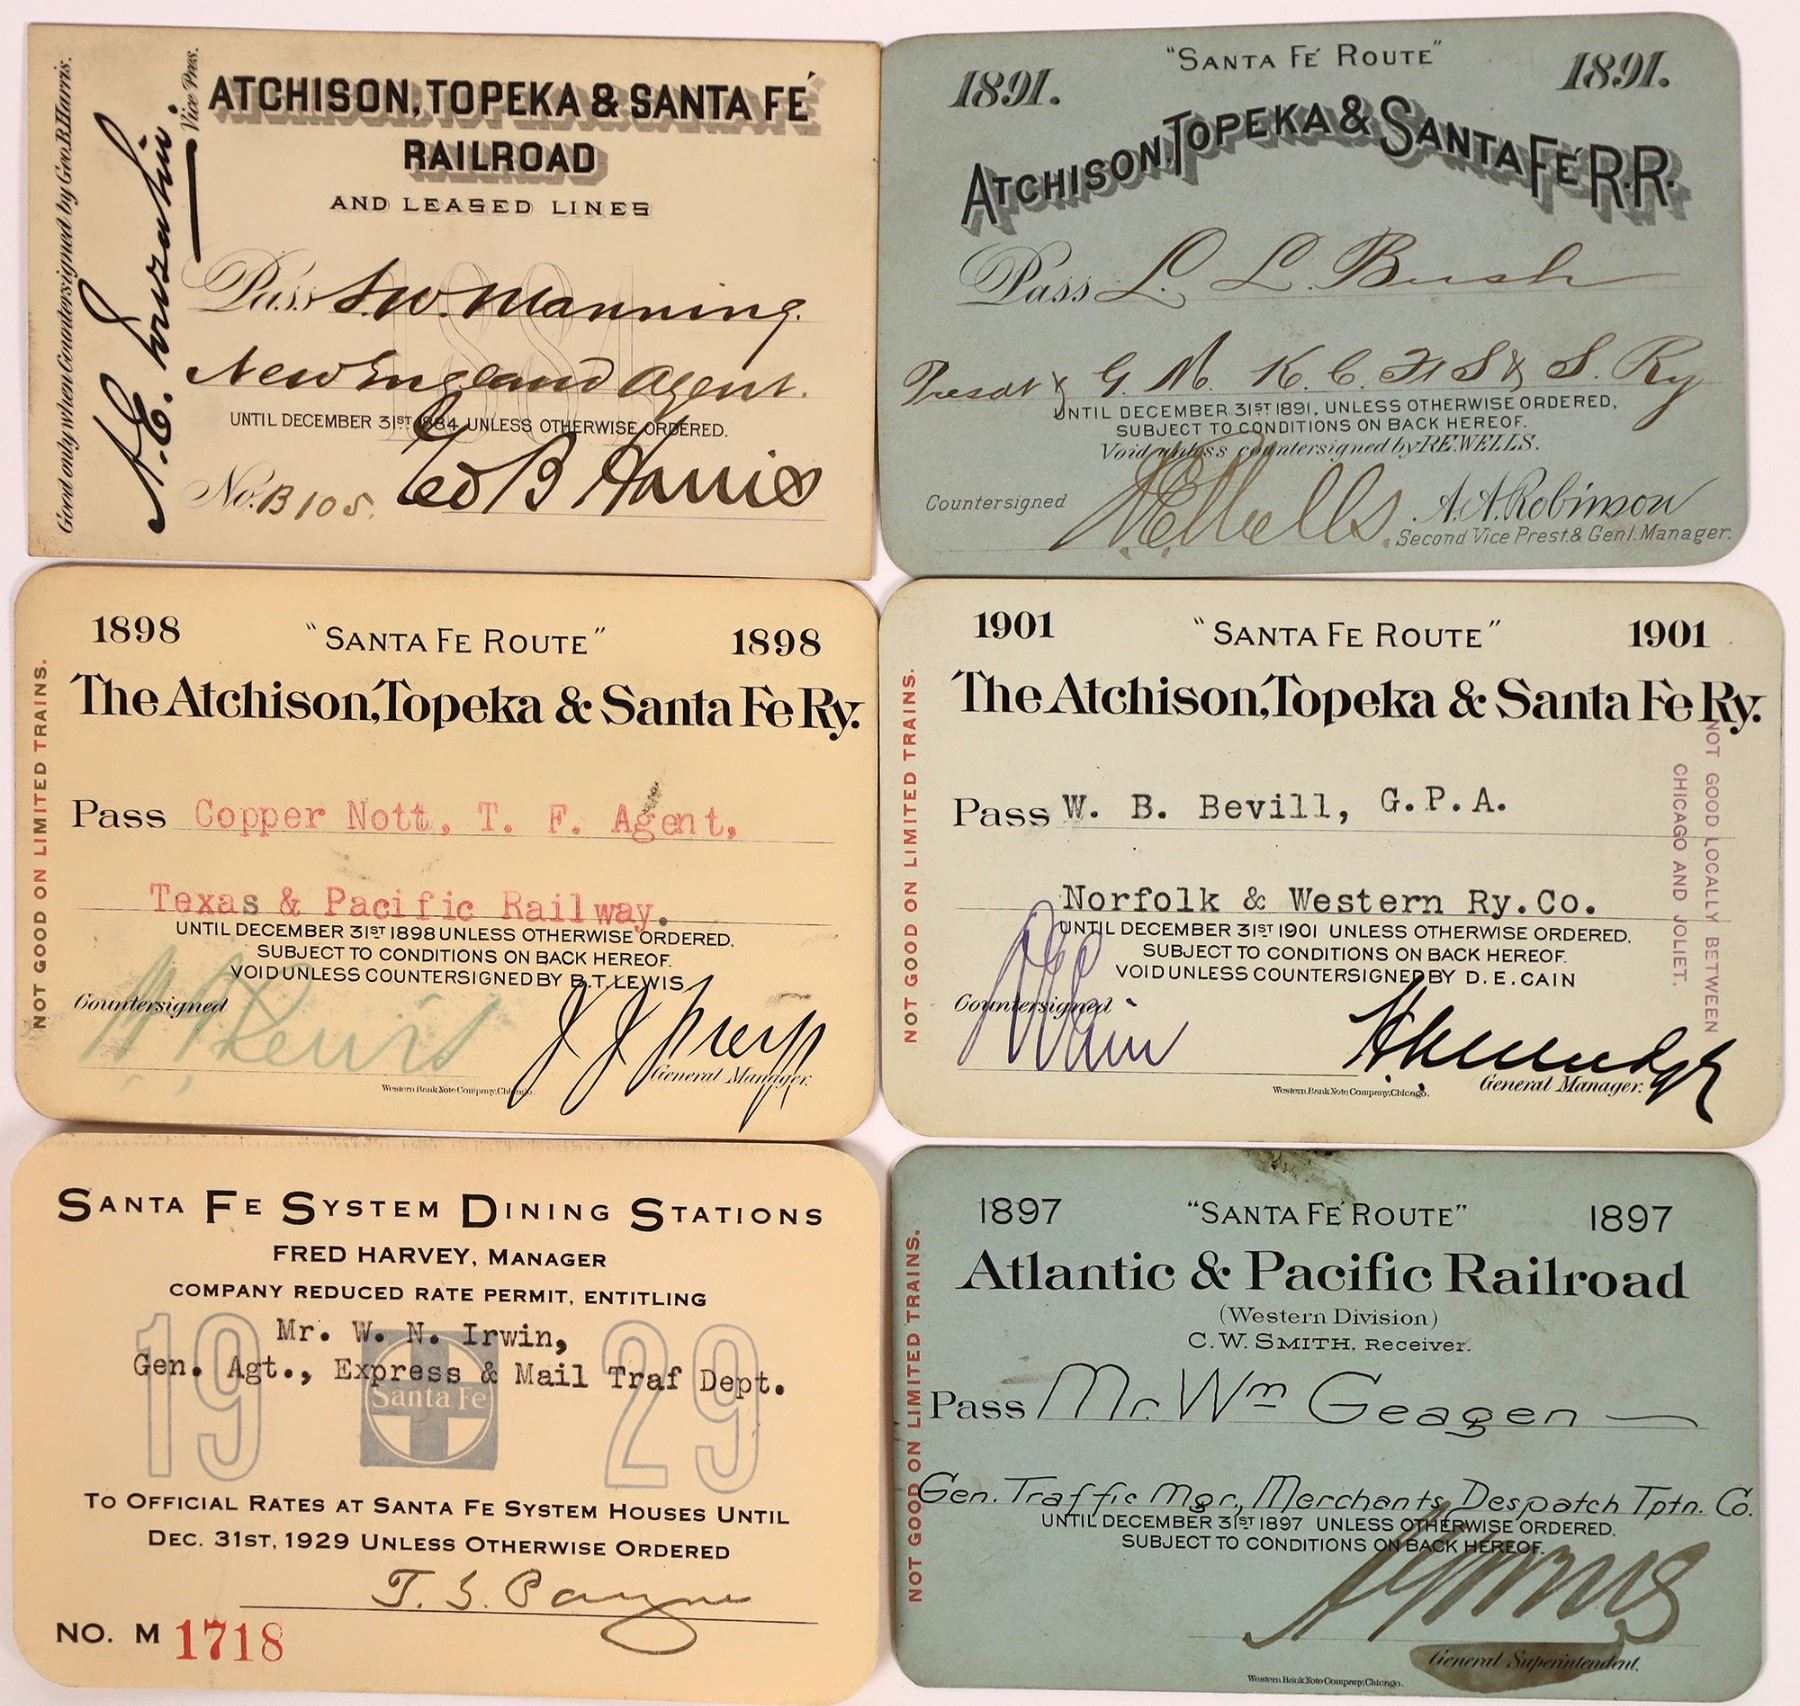 Good only when Countersigned by Geo. B. Harris.
Vice Pres.
ATCHISON, TOPEKA & SANTA FÉ
RAILROAD
AND LEASED LINES
1884
Pass S. W. Manning.
New England Agent.
UNTIL DECEMBER 31ST 1884 UNLESS OTHERWISE ORDERED.
No. B 105. Geo B Harris
"SANTA FÉ ROUTE"
1891. 1891.
ATCHISON, TOPEKA & SANTA FÉ R.R.
Pass L. L. Bush
Presdt & G. M. K. C. Ft S & S. Ry
UNTIL DECEMBER 31ST 1891, UNLESS OTHERWISE ORDERED,
SUBJECT TO CONDITIONS ON BACK HEREOF.
Void unless countersigned by R.E. WELLS.
Countersigned R.E. Wells. A. A. Robinson
Second Vice Prest. & Genl. Manager.
1898 "SANTA FE ROUTE" 1898
The Atchison, Topeka & Santa Fe Ry.
NOT GOOD ON LIMITED TRAINS.
Pass Copper Nott, T. F. Agent,
Texas & Pacific Railway.
UNTIL DECEMBER 31ST 1898 UNLESS OTHERWISE ORDERED.
SUBJECT TO CONDITIONS ON BACK HEREOF.
VOID UNLESS COUNTERSIGNED BY B. T. LEWIS
Countersigned B T Lewis J. J. Frey
General Manager.
Western Bank Note Company, Chicago.
1901 "SANTA FE ROUTE" 1901
The Atchison, Topeka & Santa Fe Ry.
NOT GOOD ON LIMITED TRAINS.
NOT GOOD LOCALLY BETWEEN
CHICAGO AND JOLIET.
Pass W. B. Bevill, G.P.A.
Norfolk & Western Ry. Co.
UNTIL DECEMBER 31ST 1901 UNLESS OTHERWISE ORDERED.
SUBJECT TO CONDITIONS ON BACK HEREOF.
VOID UNLESS COUNTERSIGNED BY D. E. CAIN
Countersigned D E Cain H. U. Mudge
General Manager.
Western Bank Note Company, Chicago.
SANTA FE SYSTEM DINING STATIONS
FRED HARVEY, MANAGER
COMPANY REDUCED RATE PERMIT, ENTITLING
Mr. W. N. Irwin,
Gen. Agt., Express & Mail Traf Dept.
1929
Santa Fe
TO OFFICIAL RATES AT SANTA FE SYSTEM HOUSES UNTIL
DEC. 31ST, 1929 UNLESS OTHERWISE ORDERED
T. S. Payne
NO. M 1718
1897 "SANTA FÉ ROUTE" 1897
Atlantic & Pacific Railroad
(Western Division)
C. W. SMITH, Receiver.
NOT GOOD ON LIMITED TRAINS.
Pass Mr. Wm Geagen
Gen. Traffic Mgr., Merchants Despatch Tptn. Co.
UNTIL DECEMBER 31ST 1897 UNLESS OTHERWISE ORDERED.
SUBJECT TO CONDITIONS ON BACK HEREOF.
General Superintendent.
Western Bank Note Company, Chicago.